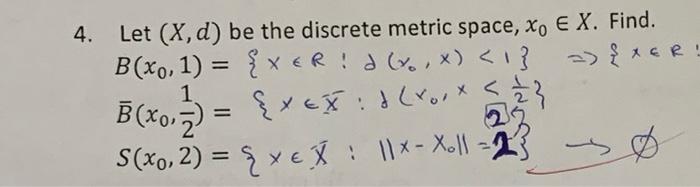 4. Let (X, d) be the discrete metric space, x₀ ∈ X. Find.
B(x₀, 1) = { x ∈ R : d(x₀, x) < 1 } => { x ∈ R :
B̄(x₀, 1/2) = { x ∈ X : d(x₀, x < 1/2 }
2 }
S(x₀, 2) = { x ∈ X : ||x - x₀|| = 2 } → ∅